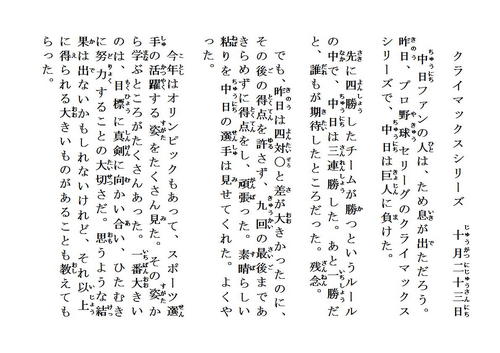 クライマックスシリーズ　十月二十三日
中日ファンの人は、ため息が出ただろう。
昨日、プロ野球セリーグのクライマックス
シリーズで、中日は巨人に負けた。
先に四勝したチームが勝つというルール
の中で、中日は三連勝した。あと一勝だ
と、誰もが期待したところだった。残念。
でも、昨日は四対〇と差が大きかったのに、
その後の得点を許さず、九回の最後まであ
きらめずに得点をし、頑張った。素晴らしい
粘りを中日の選手は見せてくれた。よくや
った。
今年はオリンピックもあって、スポーツ選
手の活躍する姿をたくさん見た。その姿か
ら学ぶところがたくさんあった。一番大きい
のは、目標に真剣に向かい合い、ひたむき
に努力することの大切さだ。思うような結
果は出ないかもしれないけれど、それ以上
に得られる大きいものがあることも教えても
らった。